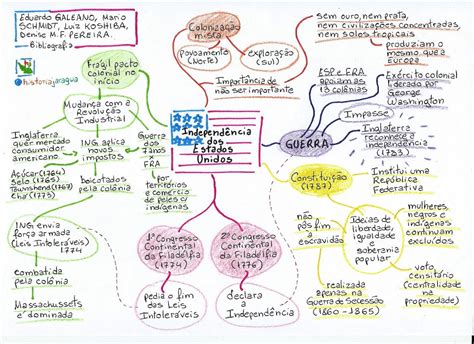 Eduardo GALEANO, Mario
SCHMIDT, Luiz KOSHIBA,
Denise M. F. PEREIRA.
Bibliografia
@historiajaragua
Frágil pacto
colonial no
início
Mudança com a
Revolução
Industrial
Inglaterra
quer mercado
consumidor
americano
ING. aplica
novos
impostos
Guerra
dos
7 anos
X
FRA
Açúcar (1764)
Selo (1765)
Townshend (1767)
Chá (1773)
boicotados
pela colônia
por
territórios
e comércio
de peles c/
indígenas
ING envia
força armada
(Leis Intoleráveis)
1774
combatida
pela colônia
Massachussets
é dominada
Colonização
mista
povoamento
(Norte)
exploração
(Sul)
Importância de
não ser importante
sem ouro, nem prata,
nem civilizações concentradas,
nem solos tropicais
produziam o
mesmo que a
Europa
Independência
dos
Estados
Unidos
GUERRA
ESP e FRA
apoiam as
13 colônias
Exército colonial
liderado por
George
Washington
Impasse
Inglaterra
reconhece a
independência
(1783)
Constituição
(1787)
Institui uma
República
Federativa
Ideias de
liberdade,
igualdade
e
soberania
popular
não
põs fim
à
escravidão
mulheres,
negros e
indígenas
continuam
excluídos
voto
censitário
(centralidade
na
propriedade)
realizada
apenas na
Guerra de Secessão
(1860-1865)
1º Congresso
Continental
da Filadélfia
(1774)
pedia o fim
das Leis
Intoleráveis
2º Congresso
Continental
da Filadélfia
(1776)
declara
a
Independência